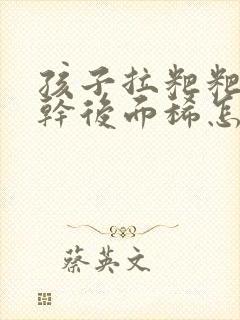 孩子拉粑粑
幹後而稀怎
蔡英文